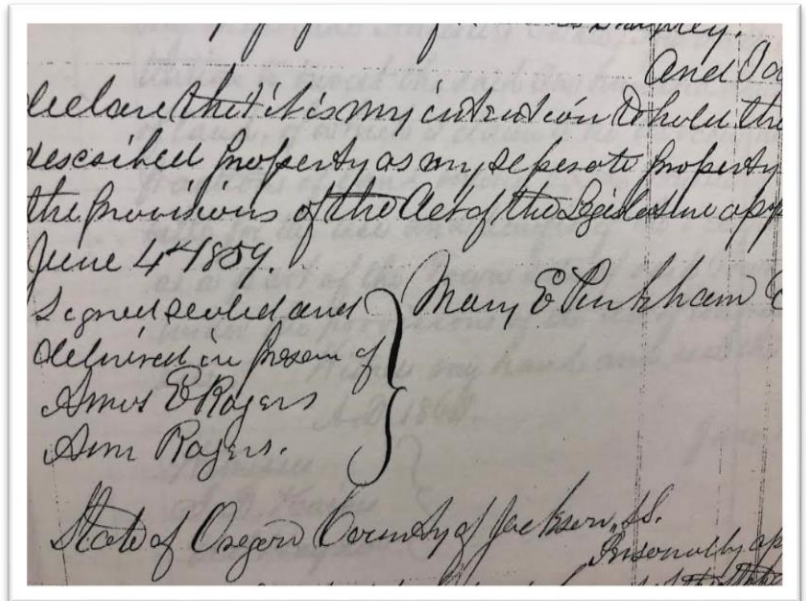 And
declare that it is my intention to hold the
described property as my seperate property
the provisions of the Act of the Legislature app
June 4th 1859.
Signed sealed and
delivered in presen of
Amos E Rogers
Ann Rogers.
Mary E Pinkham
State of Oregon County of Jackson, SS.
Personally ap